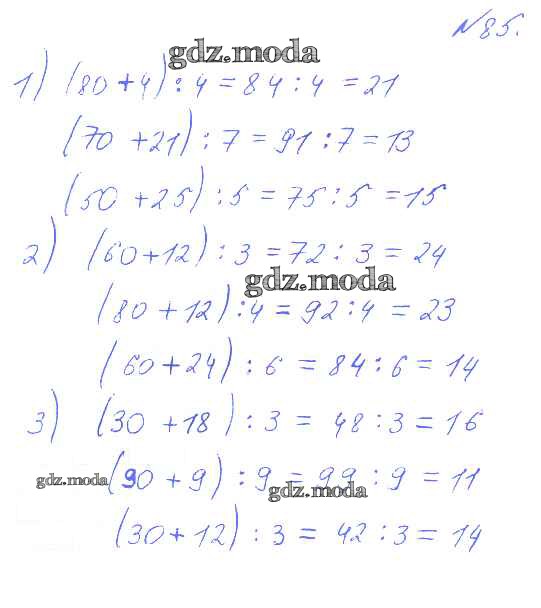 №85.
gdz.moda
1) (80+4):4=84:4=21
(70+21):7=91:7=13
(50+25):5=75:5=15
2) (60+12):3=72:3=24
gdz.moda
(80+12):4=92:4=23
(60+24):6=84:6=14
3) (30+18):3=48:3=16
gdz.moda (90+9):9=99:9=11
gdz.moda
(30+12):3=42:3=14